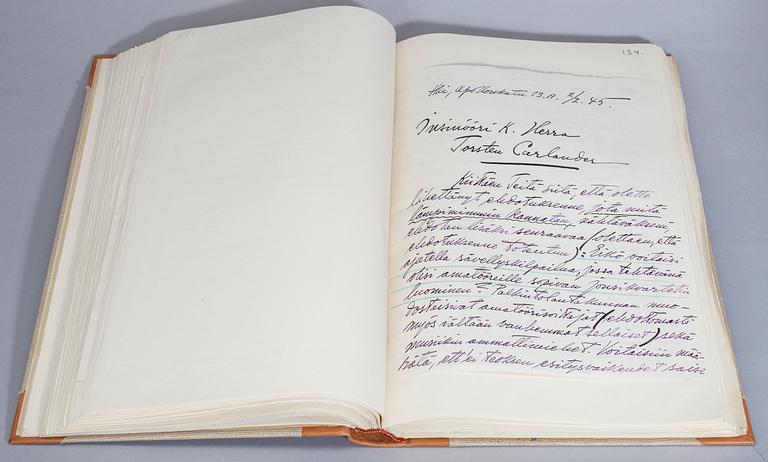 134.
Hki, Apollonkatu 13.A. 2/2. 45.
Insinööri K. Herra
Torsten Carlander
Kiittäen Teitä siitä, että olette
lähettänyt ehdotuksenne, jota mitä
lämpimimmin kannatan, nähtäväkseni,
ehdotan lisäksi seuraavaa (olettaen, että
ehdotuksenne toteutuu): Eikö voitaisi
ajatella sävellyskilpailua, jossa tehtävänä
olisi amatööreille sopivan jousikvartetin
luominen? Palkintolautakunnan muo-
dostaisivat amatöörisoittajat (ehdottomasti
myös iältään vanhemmat sellaiset) sekä
musiikin ammattimiehet. Voitaisiin mää-
rätä, ett'ei teoksen esitysvaikeudet saisi